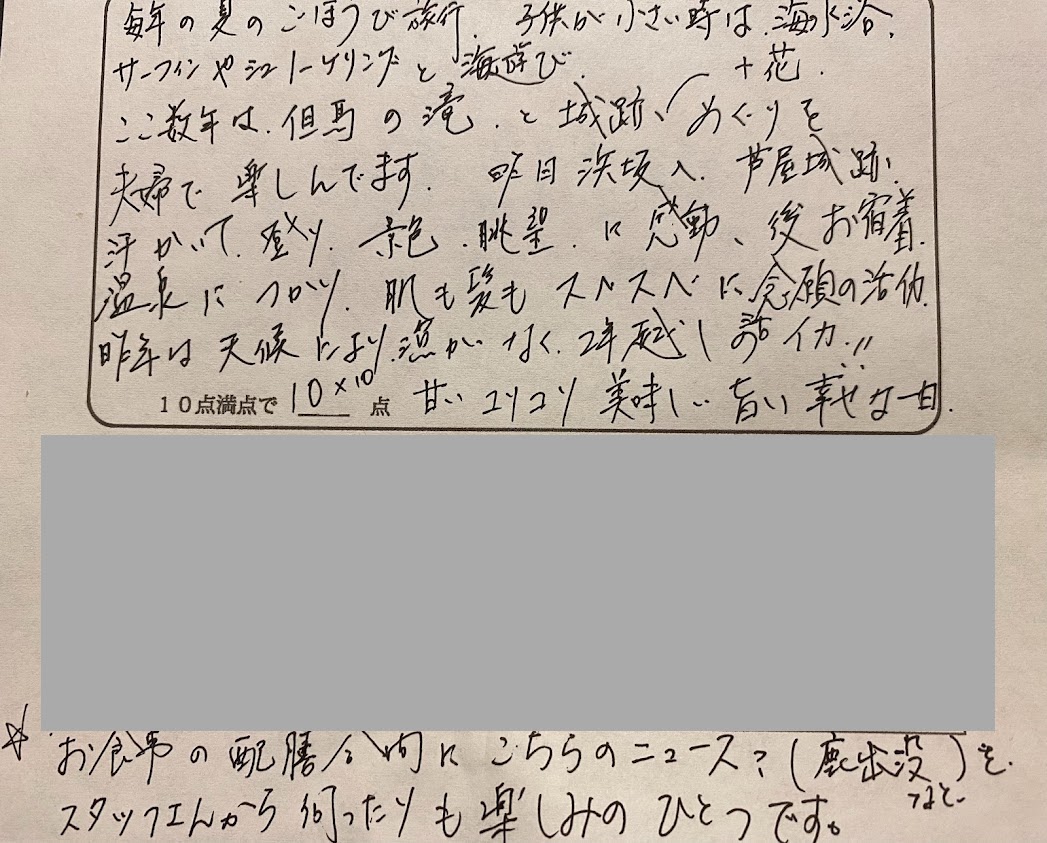 毎年の夏のごほうび旅行、子供が小さい時は、海水浴、
サーフィンやシュノーケリングと海遊び、
ここ数年は、但馬の滝、と城跡、+花、めぐりを
夫婦で楽しんでます。昨日浜坂へ、芦屋城跡、
汗かいて、登り、景色、眺望、に感動、後お宿着、
温泉につかり、肌も髪もスベスベに、念願の活イカ、
昨年は天候により、漁がなく、2年越し活イカ!!
10点満点で 10×10 点 甘いコリコリ美味しい旨い幸せな一日。
☆お食事の配膳合間にこちらのニュース?(鹿出没など)を、
スタッフさんから伺ったりも楽しみのひとつです。